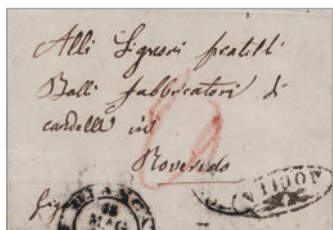 Alli Signori fratelli
Balli fabbricatori di
candelle in
Roveredo
6
BIANCA
18
MAG